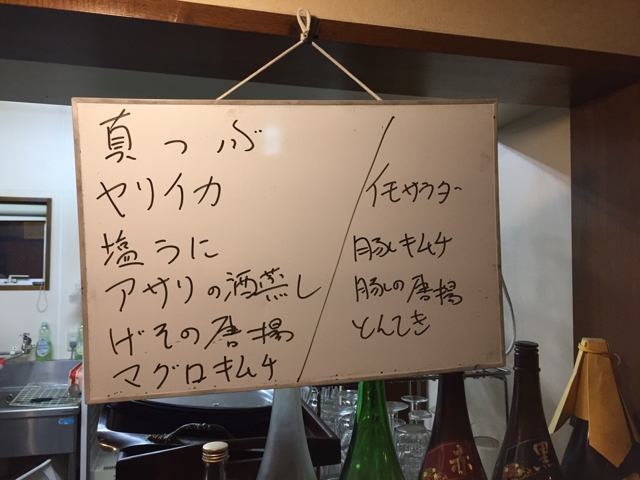 真つぶ
ヤリイカ
塩うに
アサリの酒蒸し
げその唐揚
マグロキムチ
イモサラダー
豚キムチ
豚の唐揚
とんてき
赤
黒